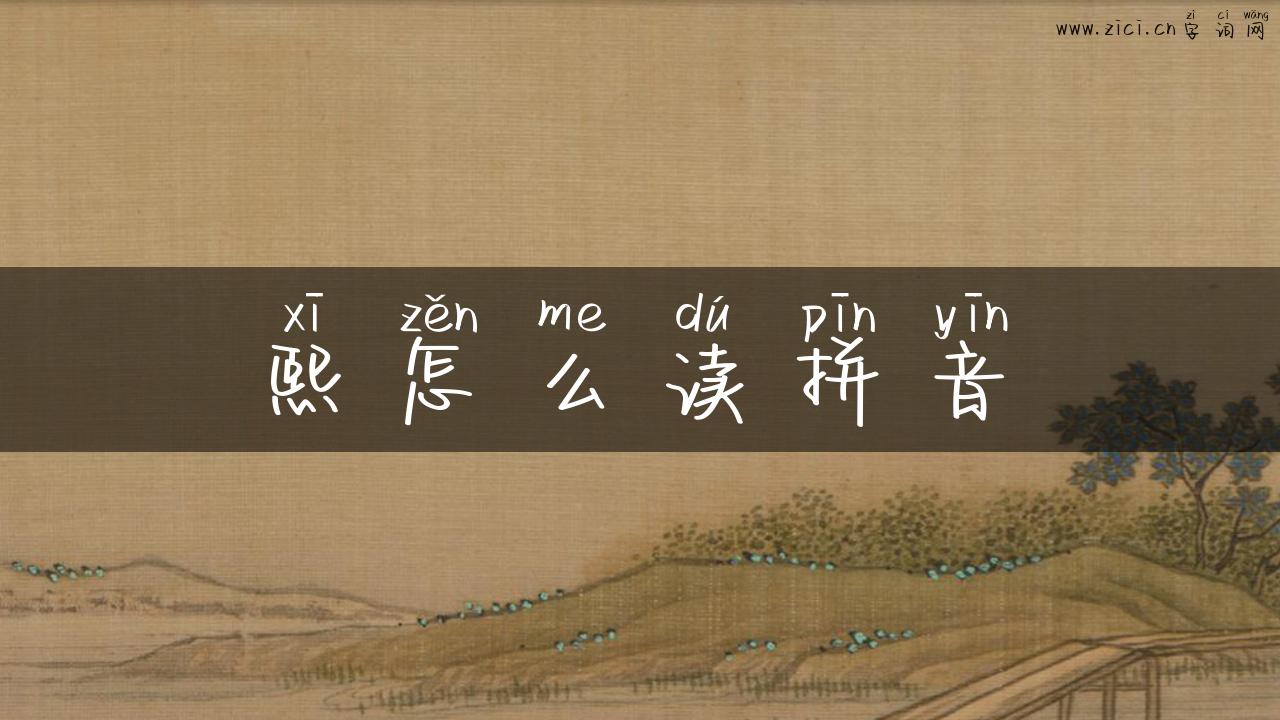 zì cí wǎng
www.zici.cn 字词网
xī zěn me dú pīn yīn
熙怎么读拼音